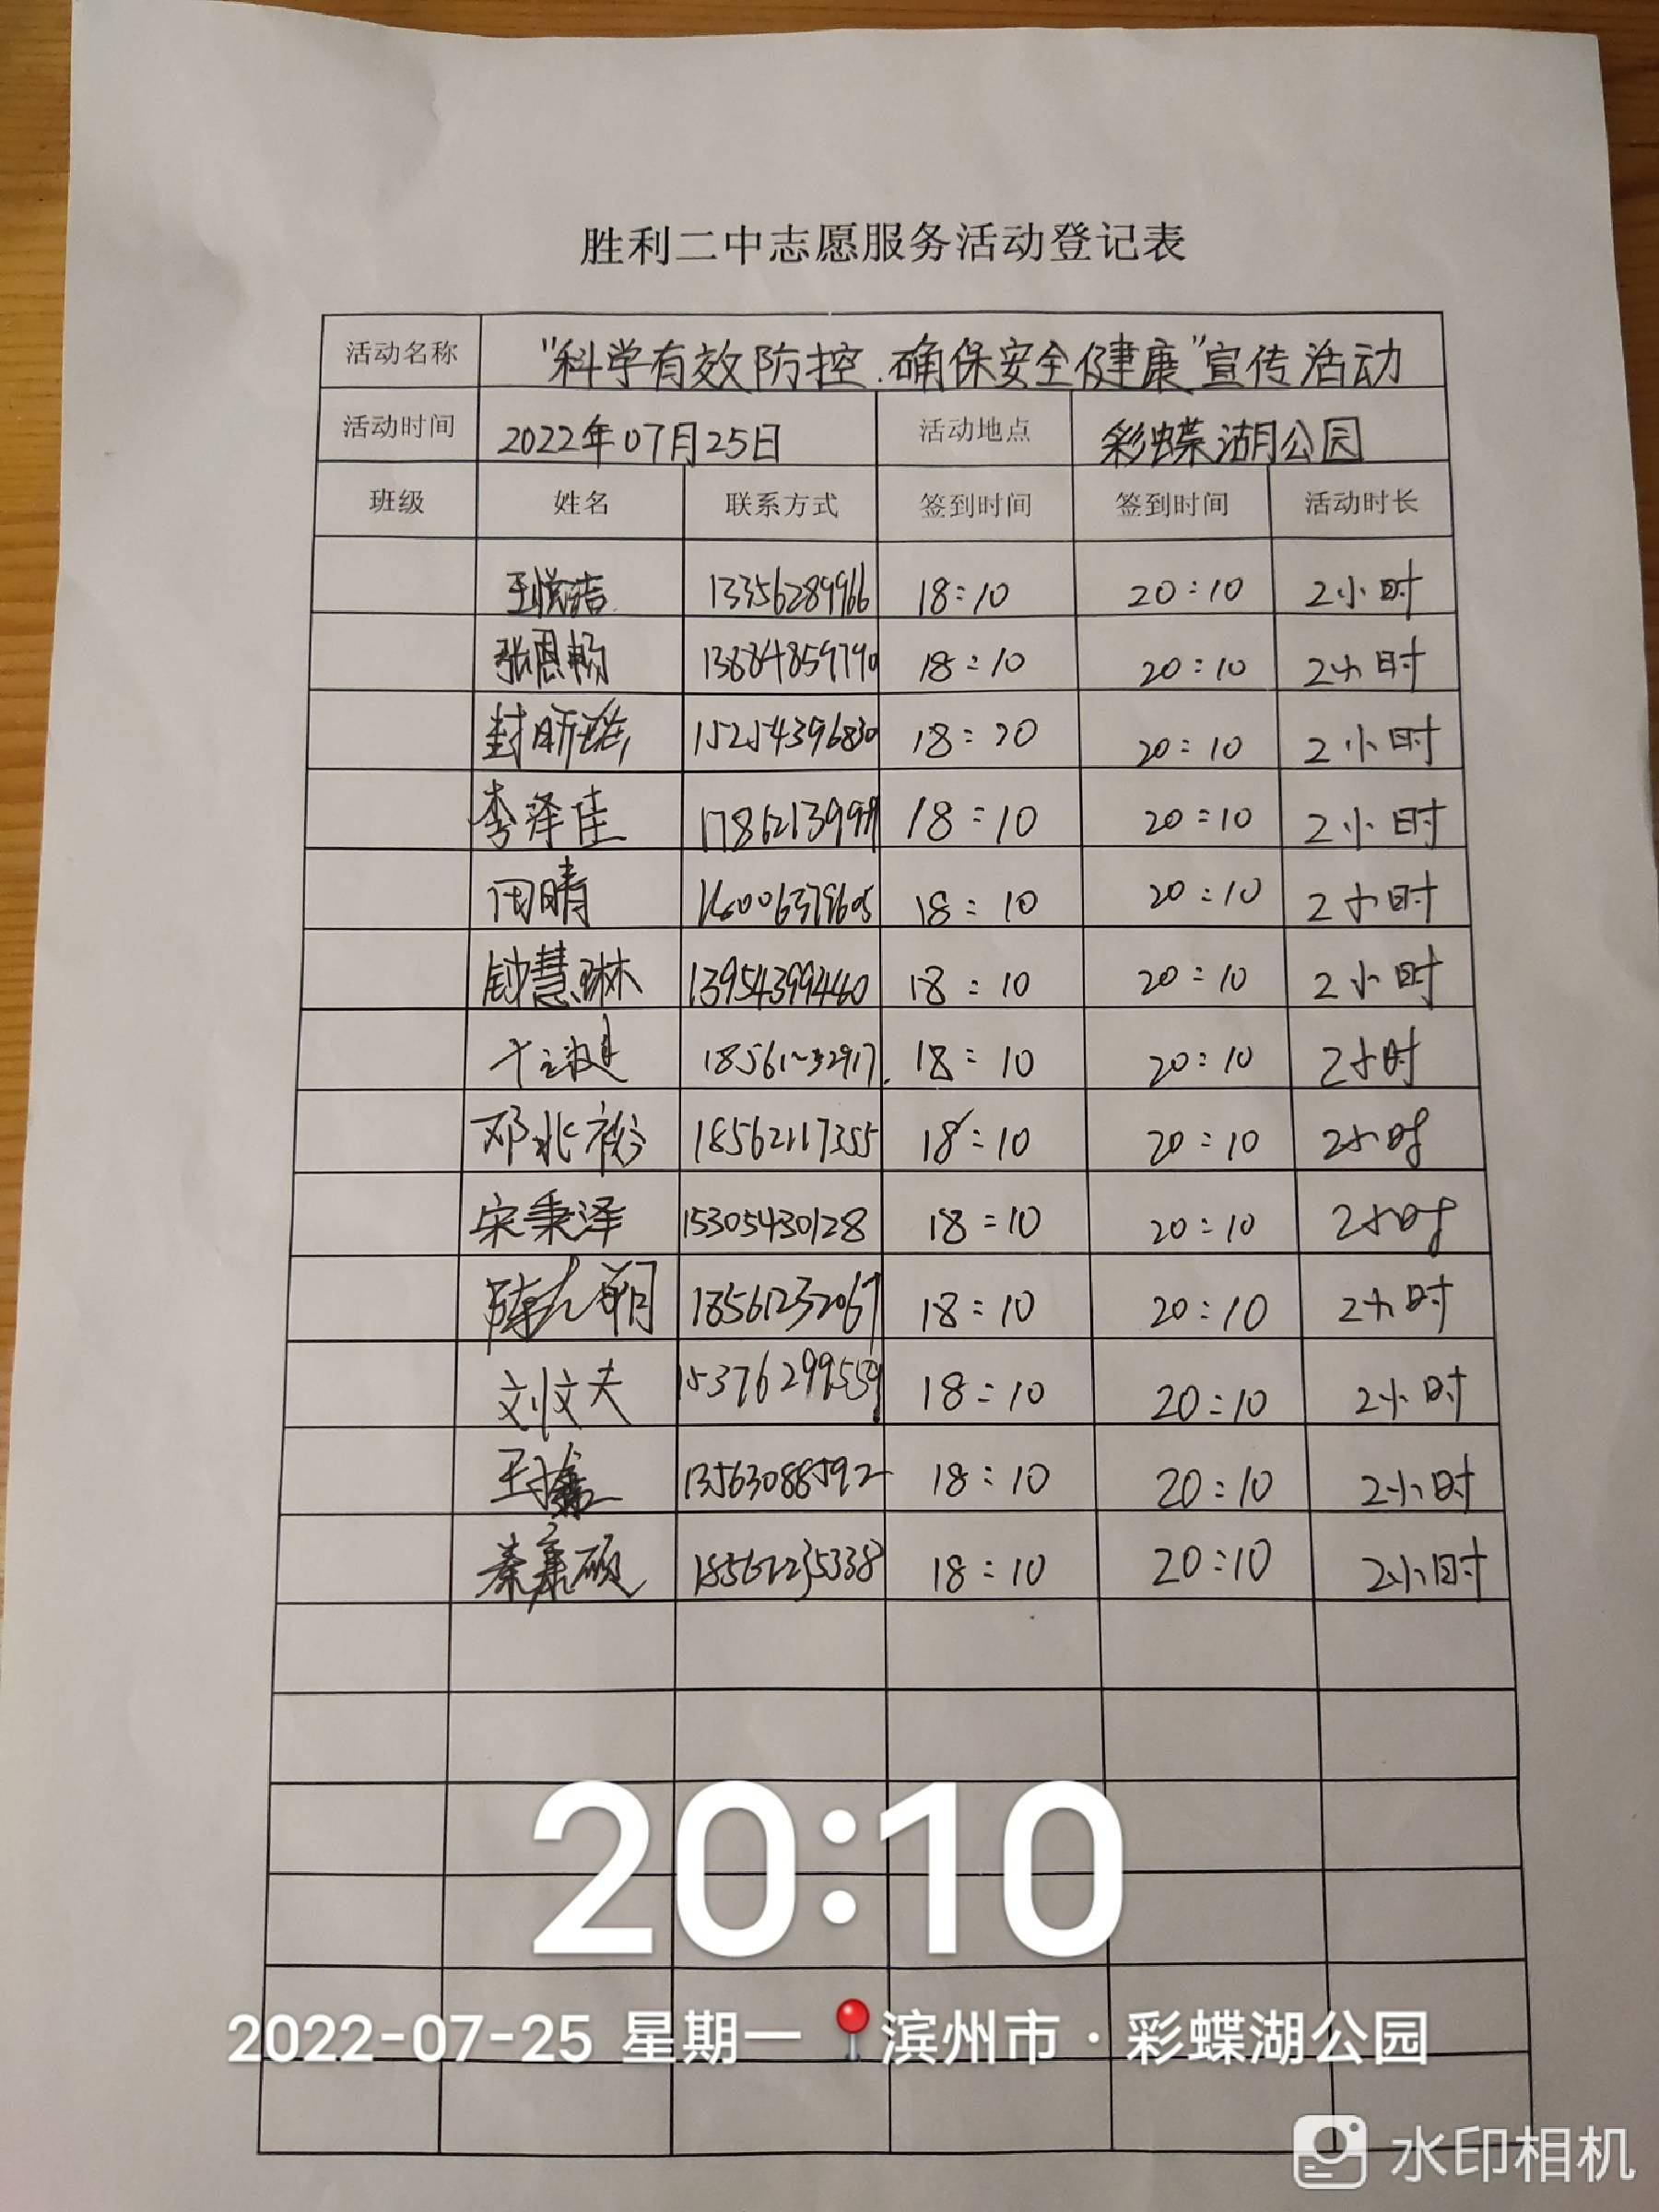 胜利二中志愿服务活动登记表
活动名称 "科学有效防控.确保安全健康"宣传活动
活动时间 2022年07月25日 活动地点 彩蝶湖公园
班级 姓名 联系方式 签到时间 签到时间 活动时长
13356289966 18:10 20:10 2小时
张恩畅 13884859790 18:10 20:10 2小时
15254396830 18:20 20:10 2小时
李泽佳 18:10 20:10 2小时
18:10 20:10 2小时
钟慧琳 13954399440 18:10 20:10 2小时
18:10 20:10 2小时
邓兆裕 18562117355 18:10 20:10 2小时
宋秉泽 15305430128 18:10 20:10 2小时
18561232067 18:10 20:10 2小时
刘文夫 15376299559 18:10 20:10 2小时
13563088592 18:10 20:10 2小时
秦康硕 18562235338 18:10 20:10 2小时
20:10
2022-07-25 星期一 滨州市·彩蝶湖公园
水印相机